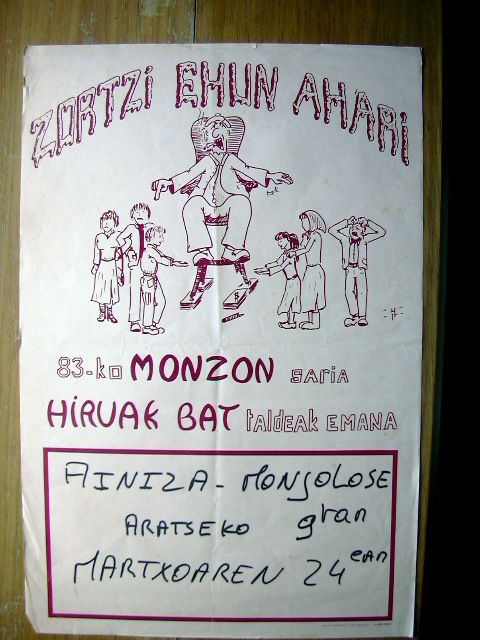 ZORTZi EHUN AHARi
83-ko MONZON saria
HiRUAK BAT taldeak EMANA
AINIZA - MONJOLOSE
ARATSEKO gtan
MARTXOAREN 24 ean